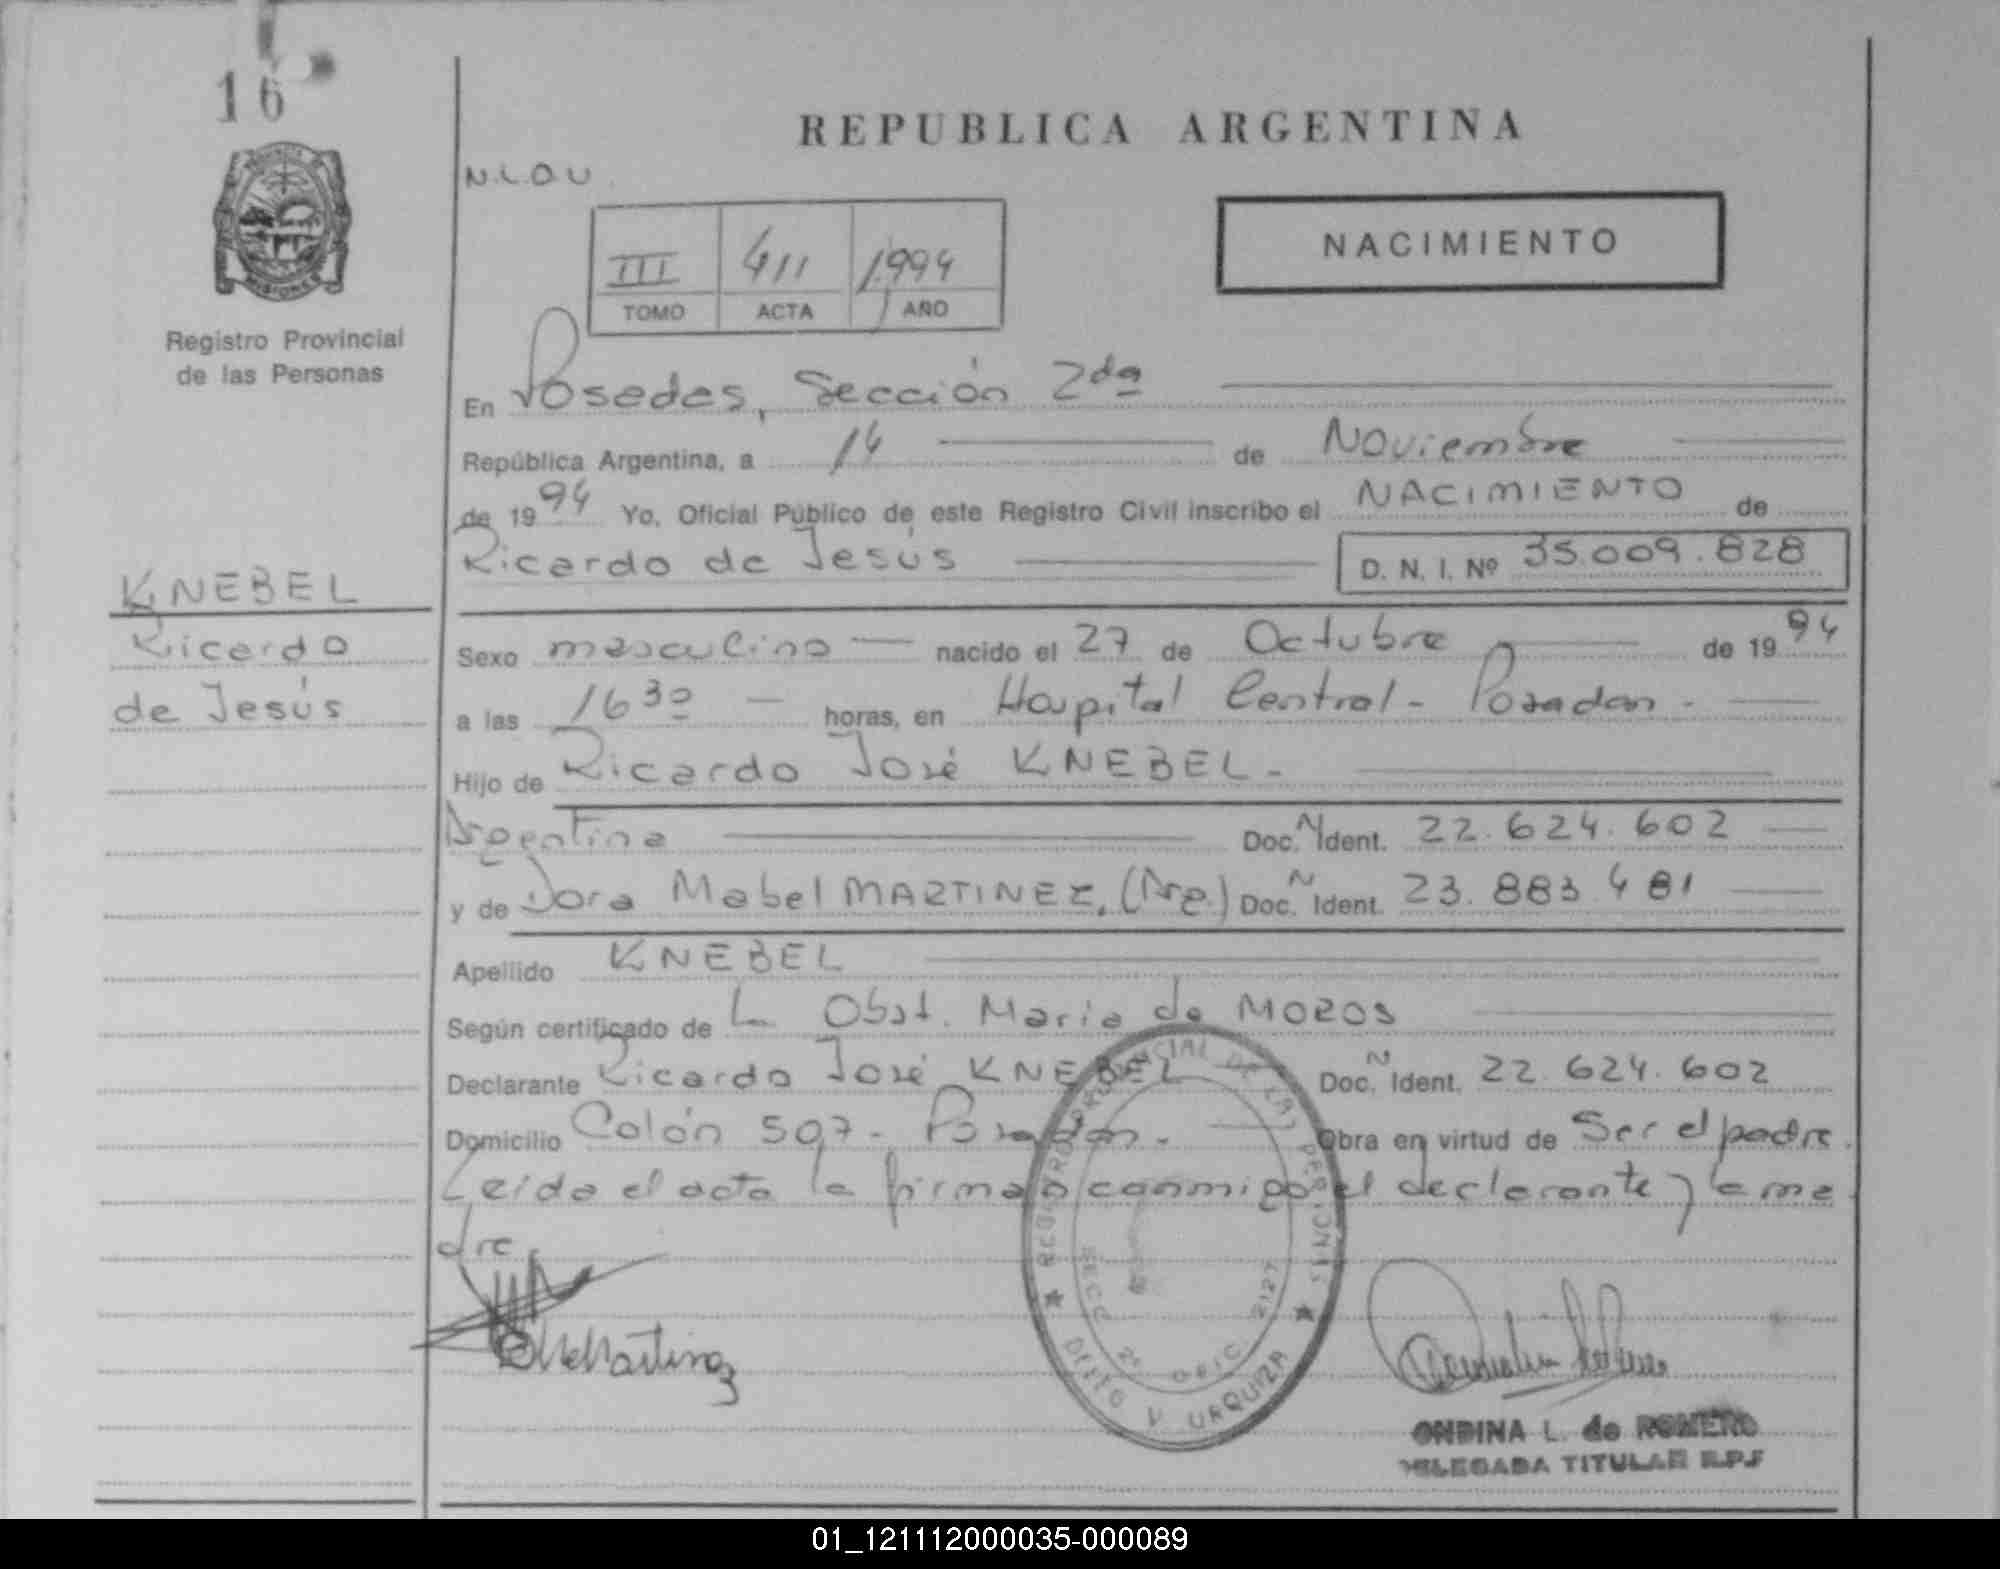 16
REPUBLICA ARGENTINA
N.L.O.U.
NACIMIENTO
III 411 1994
TOMO ACTA AÑO
PROVINCIA DE
MISIONES
Registro Provincial
de las Personas
En Posadas, Sección 2da
República Argentina, a 14 de Noviembre
de 1994 Yo, Oficial Público de este Registro Civil inscribo el NACIMIENTO de
Ricardo de Jesús D. N. I. Nº 35.009.828
KNEBEL
Ricardo
de Jesús
Sexo masculino nacido el 27 de Octubre de 1994
a las 16 30 horas, en Hospital Central - Posadas -
Hijo de Ricardo José KNEBEL -
Argentina Doc. N Ident. 22.624.602
y de Dora Mabel MARTINEZ, (Arg.) Doc. N Ident. 23.883.481
Apellido KNEBEL
Según certificado de L Obst. Maria de MOZOS
Declarante Ricardo José KNEBEL Doc. N Ident. 22.624.602
Domicilio Colón 507 - Posadas - Obra en virtud de Ser el padre.
Leida el acta la firman conmigo el declarante y la ma
dre
Martinez
REGISTRO PROVINCIAL DE LAS PERSONAS
SECC 2ª OFIC 2127
DPTO V URQUIZA
ONDINA L. de ROMERO
DELEGADA TITULAR R.P.P
01_121112000035-000089